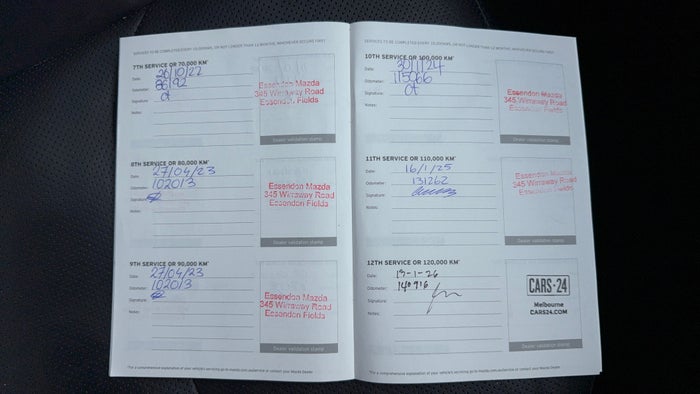 SERVICES TO BE COMPLETED EVERY 10,000KMS, OR NOT LONGER THAN 12 MONTHS, WHICHEVER OCCURS FIRST.
7TH SERVICE OR 70,000 KM*
Date: 26/10/22
Odometer: 86192
Signature:
Notes:
Essendon Mazda
345 Wirraway Road
Essendon Fields
Dealer validation stamp
8TH SERVICE OR 80,000 KM*
Date: 27/04/23
Odometer: 102013
Signature:
Notes:
Essendon Mazda
345 Wirraway Road
Essendon Fields
Dealer validation stamp
9TH SERVICE OR 90,000 KM*
Date: 27/04/23
Odometer: 102013
Signature:
Notes:
Essendon Mazda
345 Wirraway Road
Essendon Fields
Dealer validation stamp
*For a comprehensive explanation of your vehicle's servicing go to mazda.com.au/service or contact your Mazda Dealer
SERVICES TO BE COMPLETED EVERY 10,000KMS, OR NOT LONGER THAN 12 MONTHS, WHICHEVER OCCURS FIRST.
10TH SERVICE OR 100,000 KM*
Date:
Odometer: 115066
Signature:
Notes:
Essendon Mazda
345 Wirraway Road
Essendon Fields
Dealer validation stamp
11TH SERVICE OR 110,000 KM*
Date: 16/1/25
Odometer: 131262
Signature:
Notes:
Essendon Mazda
345 Wirraway Road
Essendon Fields
Dealer validation stamp
12TH SERVICE OR 120,000 KM*
Date: 13-1-26
Odometer: 140716
Signature:
Notes:
CARS24
Melbourne
CARS24.COM
Dealer validation stamp
*For a comprehensive explanation of your vehicle's servicing go to mazda.com.au/service or contact your Mazda Dealer